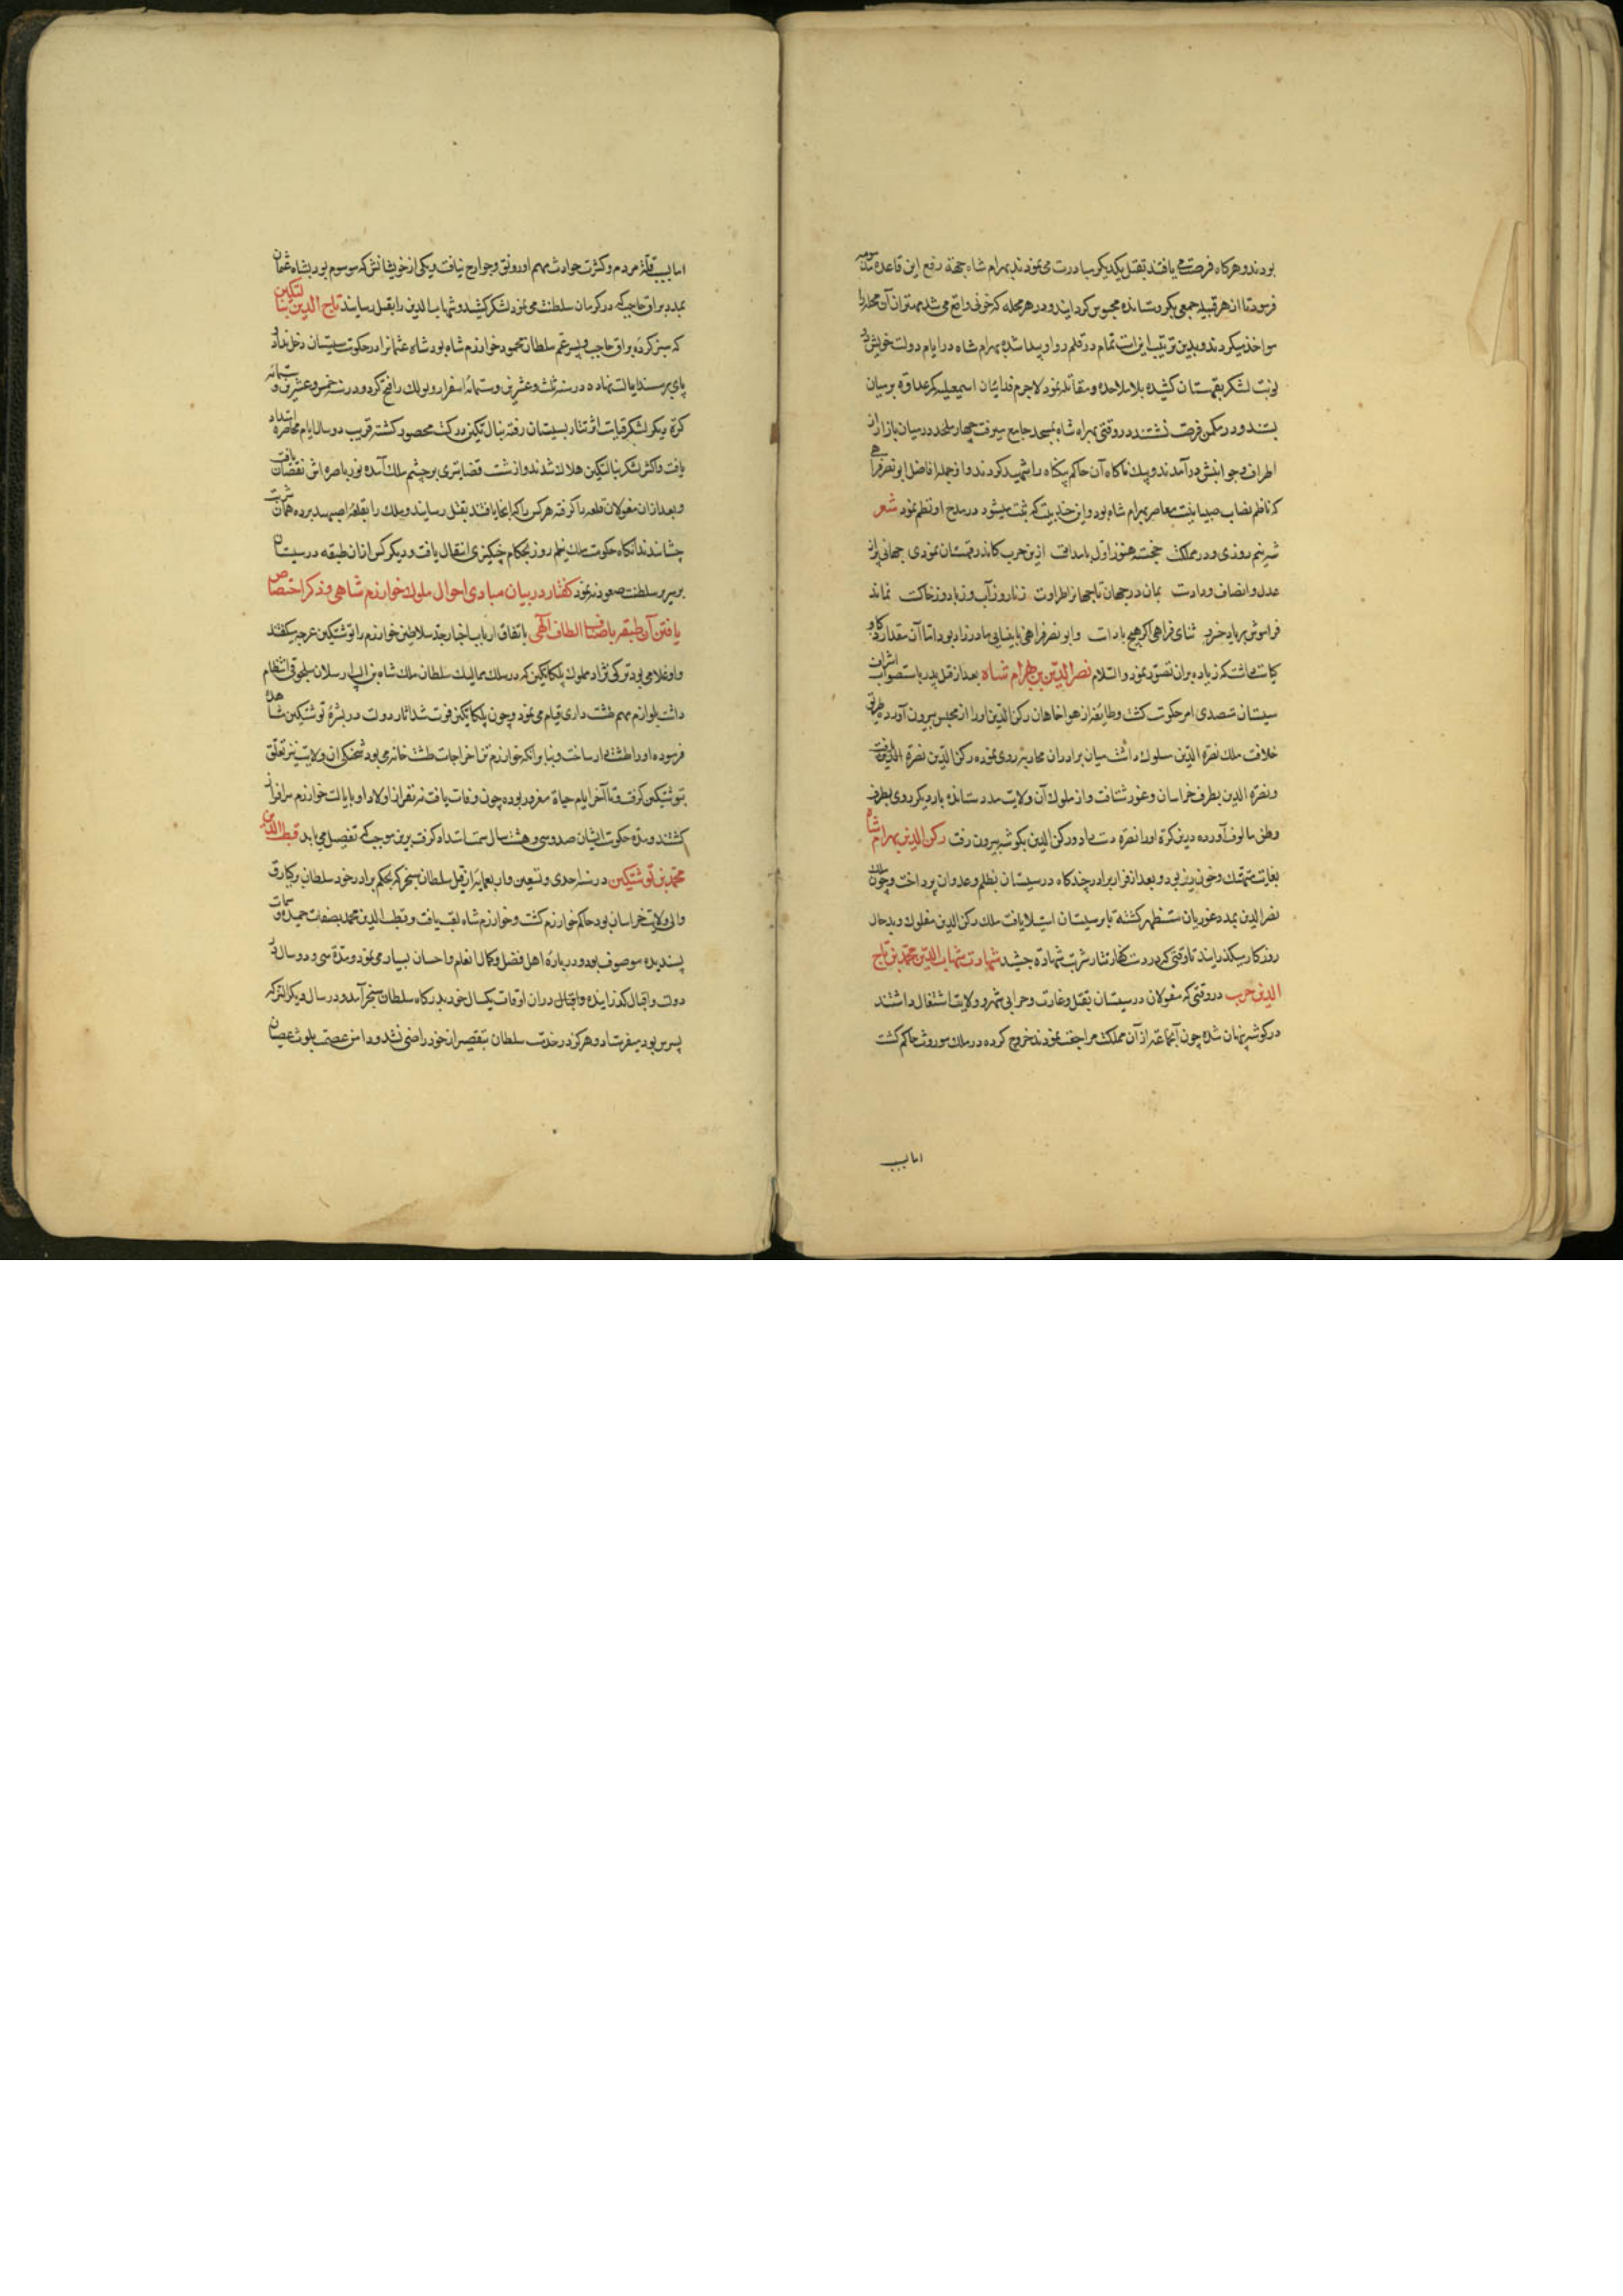 بودند و هرکاه فرصت می یافتند بقتل یکدیکر مبادرت می نمودند بهرام شاه جهة دفع این قاعده
فرمود تا از هر قبیله جمعی بکرو ستانده محبوس کردانیدند و در هر محله که خونی واقع می شد مهتران آن محله را
مواخذ میکردند و بدین ترتیب امنیت تمام در قلمرو او پیدا شده بهرام شاه در ایام دولت خویش دو
نوبت لشکر بقهستان کشیده با ملاحده مقاتله نمود لاجرم فدائیان اسمعیلیه کمر عداوة بر میان
بستند و در مکمن فرصت نشستند در وقتی بهرام شاه بمسجد جامع میرفت چهار ملحد در میان بازار از
اطراف و جوانبش درآمدند و بیک ناکاه آن حاکم بیکناه را شهید کردند و از جمله افاضل ابو نصر فراهی
که ناظم نصاب صبیانست معاصر بهرام شاه بود و این چند بیت که ثبت میشود در مدح او نظم نمود شعر
شه نیم روزی و در مملکت خجسته هنوز اول بامدادت ازین حرب کاندر قهستان نمودی جهانی پر از
عدل و انصاف و دادت بمان در جهان تا جهانرا طراوت ز نار و ز آب و ز باد و ز خاکت نماند
فراموش بر یاد خسرو ثنای فراهی اکر هیچ بادات و ابو نصر فراهی نابینای مادر زاد بود اما آن مقدار ذکا و
کیاست داشت که زیاده بران تصور نتوان نمود والسلام نصر الدین بن بهرام شاه بعد از قتل پدر باستصواب اشراف
سیستان متصدی امر حکومت کشت و طایفه از هواخاهان رکن الدین او را از محبس بیرون آورده طریق
خلافت ملک نصرة الدین سلوک داشت میان برادران محاربه روی نموده رکن الدین نصرة الدین
و نصرة الدین بطرف خراسان و غور شتافت و از ملوک آن ولایت مدد ستانده بار دیکر روی بطرف
وطن مالوف آورده درین کرة او را نصرة دست داد و رکن الدین بکوشه بیرون رفت رکن الدین بهرام شاه
بغایت متهتک و خون ریز بود و بعد از فرار برادر چند کاه در سیستان بظلم و عدوان پرداخت و چون ملک
نصر الدین بمدد غوریان مستظهر کشته تا بر سیستان استیلا یافت ملک رکن الدین مفلوک و بد حال
روزکار میکذرانید تا وقتی که بر دست کفار تتار شربت شهادة چشید شهادت شهاب الدین محمد بن تاج
الدین حرب در وقتی که مغولان در سیستان بقتل و غارت و خرابی شهر و ولایت اشتغال داشتند
در کوشه پنهان شده چون آنجماعة از آن مملکت مراجعت نمودند خروج کرده در ملک موروث حاکم کشت
اما بسبب
اما بسبب قلة مردم و کثرت حوادث مهم او رونق و رواج نیافت و یکی از خویشانش که موسوم بود بشاه عثمان
بمدد براق حاجب که در کرمان سلطنت می نمود لشکر کشید و شهاب الدین را بقتل رسانید تاج الدین بنالتکین
که سر کرده براق حاجب و پسر عم سلطان محمود خوارزم شاه بود شاه عثمانرا در حکومت سیستان دخل نداد
پای بر مسند ایالت نهاده در سنه ثلث و عشرین و ستمائه اسفرار و تولک را فتح کرد و در سنه خمس و عشرین و ستمائه
کرة دیکر لشکر قیامت اثر تتار بسیستان رفته بنالتکین در ارک محصور کشته قریب دو سال ایام محاصره امتداد
یافت و اکثر لشکر بنالتکین هلاک شدند و از شست قضا تیری بر چشم ملک آمده نور باصره اش نقصان یافت
و بعد از آن مغولان قلعه را کرفته هر کس را که آنجا یافتند بقتل رسانیدند و ملک را بقلعه اصبهبد برده همان شربت
چشاندند آنکاه حکومت ملک نیم روز بحکام چنکیزی انتقال یافت و دیکر کس از ان طبقه در سیستان
بر سریر سلطنت صعود ننمود کفتار در بیان مبادی احوال ملوک خوارزم شاهی و ذکر اختصاص
یافتن آن طبقه باصناف الطاف الهی باتفاق ارباب اخبار جد سلاطین خوارزم را نوشتکین غرجه میکفتند
و او غلامی بود ترکی نژاد مملوک بلکاتکین که در سلک ممالیک سلطان ملک شاه بن الب ارسلان سلجوقی انتظام
داشت بلوازم مهم طشت داری قیام می نمود و چون بلکاتکین فوت شد آثار دولت در بشرۀ نوشتکین مشاهده
فرموده او را طشت دار ساخت و بنا بر آنکه خوارزم تن اخراجات طشت خانه می بود شحنکی آن ولایت نیز تعلق
بنوشتکین کرفت و تا آخر ایام حیاة مغرور بوده چون وفات یافت نه نفر از اولاد او بایالت خوارزم سرافراز
کشتند و مدة حکومت ایشان صد و سی و هشت سال سمت امتداد کرفت برین موجب که تفصیل می یابد قطب الدین
محمد بن نوشتکین در سنه احدی و تسعین و اربعمایه از قبل سلطان سنجر که بحکم برادر خود سلطان برکیارق
والی ولایت خراسان بود حاکم خوارزم کشت و خوارزم شاه لقب یافت و قطب الدین محمد بصفات حمیده و سمات
پسندیده موصوف بود و در بارۀ اهل فضل و کمال انعام و احسان بسیار می نمود و مدة سی و دو سال در
دولت و اقبال کذرانیده در ان اوقات یکسال خود بدرکاه سلطان سنجر آمد و در سال دیکر اتسز که
پسرس بود میفرستاد و هرکز در خدمت سلطان بتقصیر از خود راضی نشد و دامن عصمت بلوث عصیان